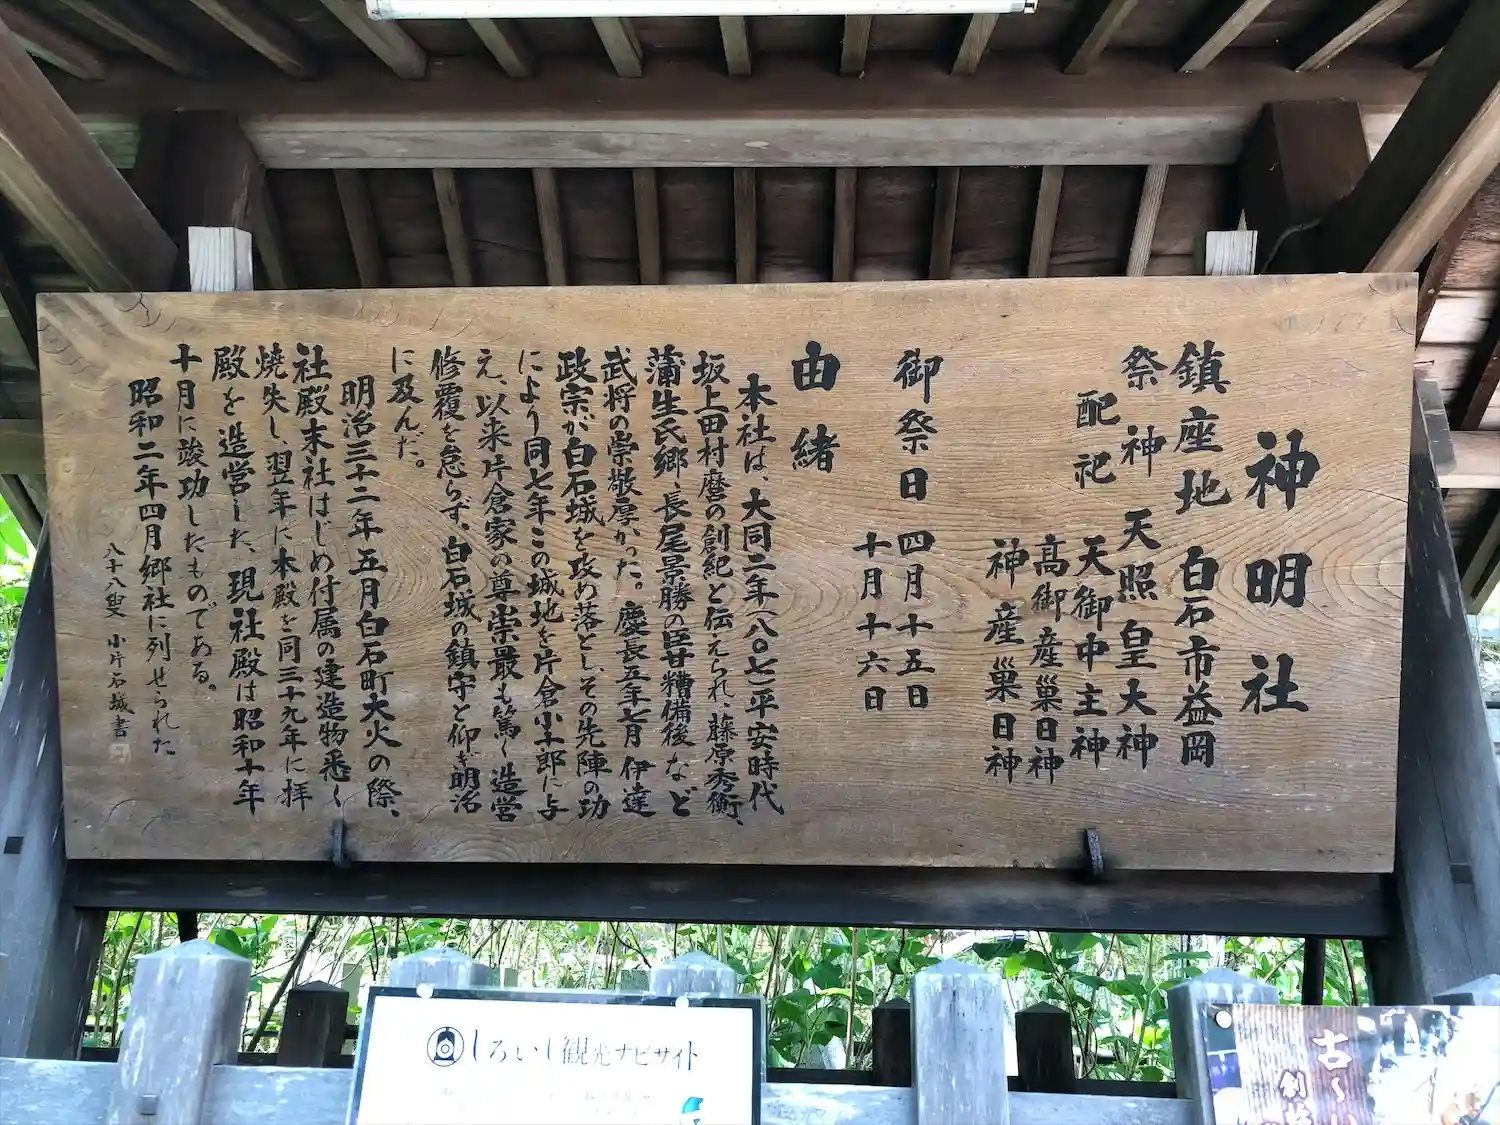 神明社
鎮座地 白石市益岡
祭神 天照皇大神
配祀 天御中主神
高御産巣日神
神産巣日神
御祭日 四月十五日
十月十六日
由緒
本社は、大同二年(八〇七)平安時代
坂上田村麿の創紀と伝えられ、藤原秀衡、
蒲生氏郷、長尾景勝の臣甘糟備後など
武将の崇敬厚かった。慶長五年七月伊達
政宗が白石城を攻め落とし、その先陣の功
により同七年この城地を片倉小十郎に与
え、以来片倉家の尊崇最も篤く造営
修覆を怠らず、白石城の鎮守と仰ぎ明治
に及んだ。
明治三十二年五月白石町大火の際、
社殿末社はじめ付属の建造物悉く
焼失し、翌年に本殿を同三十九年に拝
殿を造営した、現社殿は昭和十年
十月に竣功したものである。
昭和二年四月郷社に列せられた
八十八叟 小片石城書
しろいし観光ナビサイト
古〜い